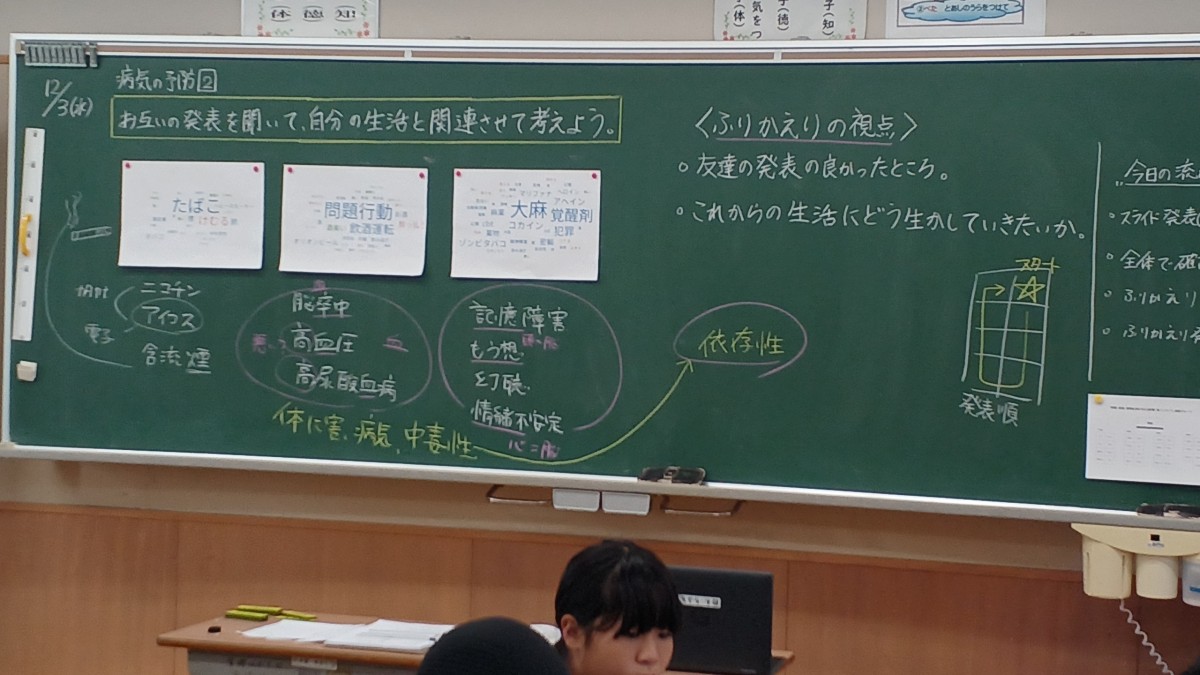 体 徳 知
(体)
気をつ
子(徳)
子(知)
②ぺた とおしのうらをつけて
12/3(水)
病気の予防②
お互いの発表を聞いて、自分の生活と関連させて考えよう。
たばこ
けむる
問題行動
飲酒運転
大麻
覚醒剤
マリファナ
ヘロイン
アヘイン
コカイン
犯罪
ゾンビタバコ
ニコチン
アイコス
電子
含流煙
脳卒中
高血圧
高尿酸血病
血
記憶障害
もう想
幻聴
情緒不安定
心=脳
体に害、病気、中毒性
依存性
〈ふりかえりの視点〉
○友達の発表の良かったところ。
○これからの生活にどう生かしていきたいか。
スタート
発表順
今日の流
スライド発表
○全体で確
○ふりかえり
○ふりかえり